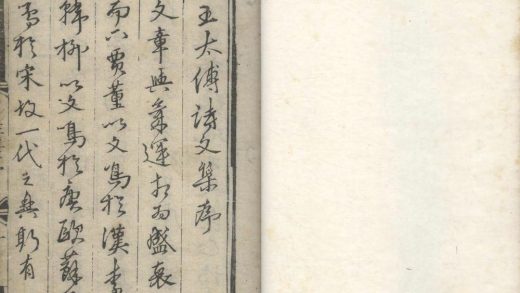 王太傅詩文集序
文章與氣運相為盛衰
而下賈董以文鳴於漢李
韓柳以文鳴於唐歐蘇
焉於宋故一代之興斯有